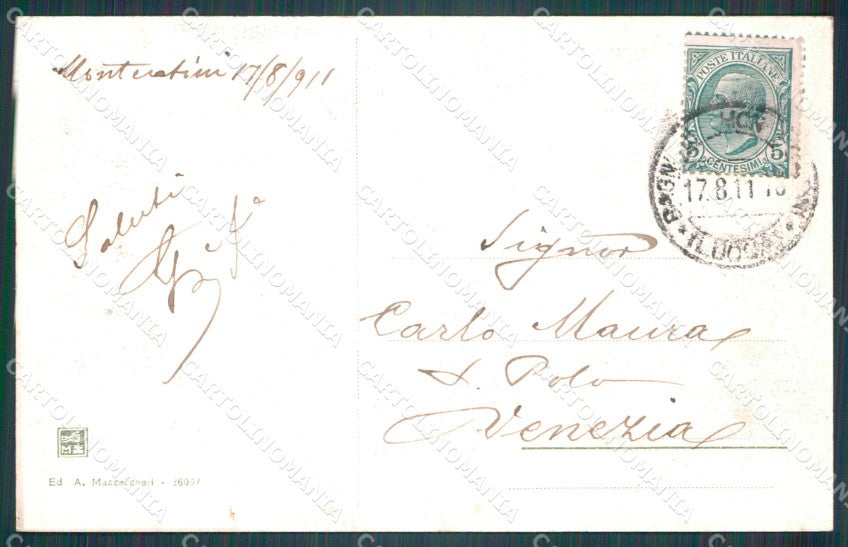 Montecatini 17/8/911
Saluti
POSTE ITALIANE
5 5
CENTESIMI
17.8.11
Signor
Carlo Maura
S. Polo
Venezia
Ed A. Mazzoncheri - 36007
CARTOLINOMANIA